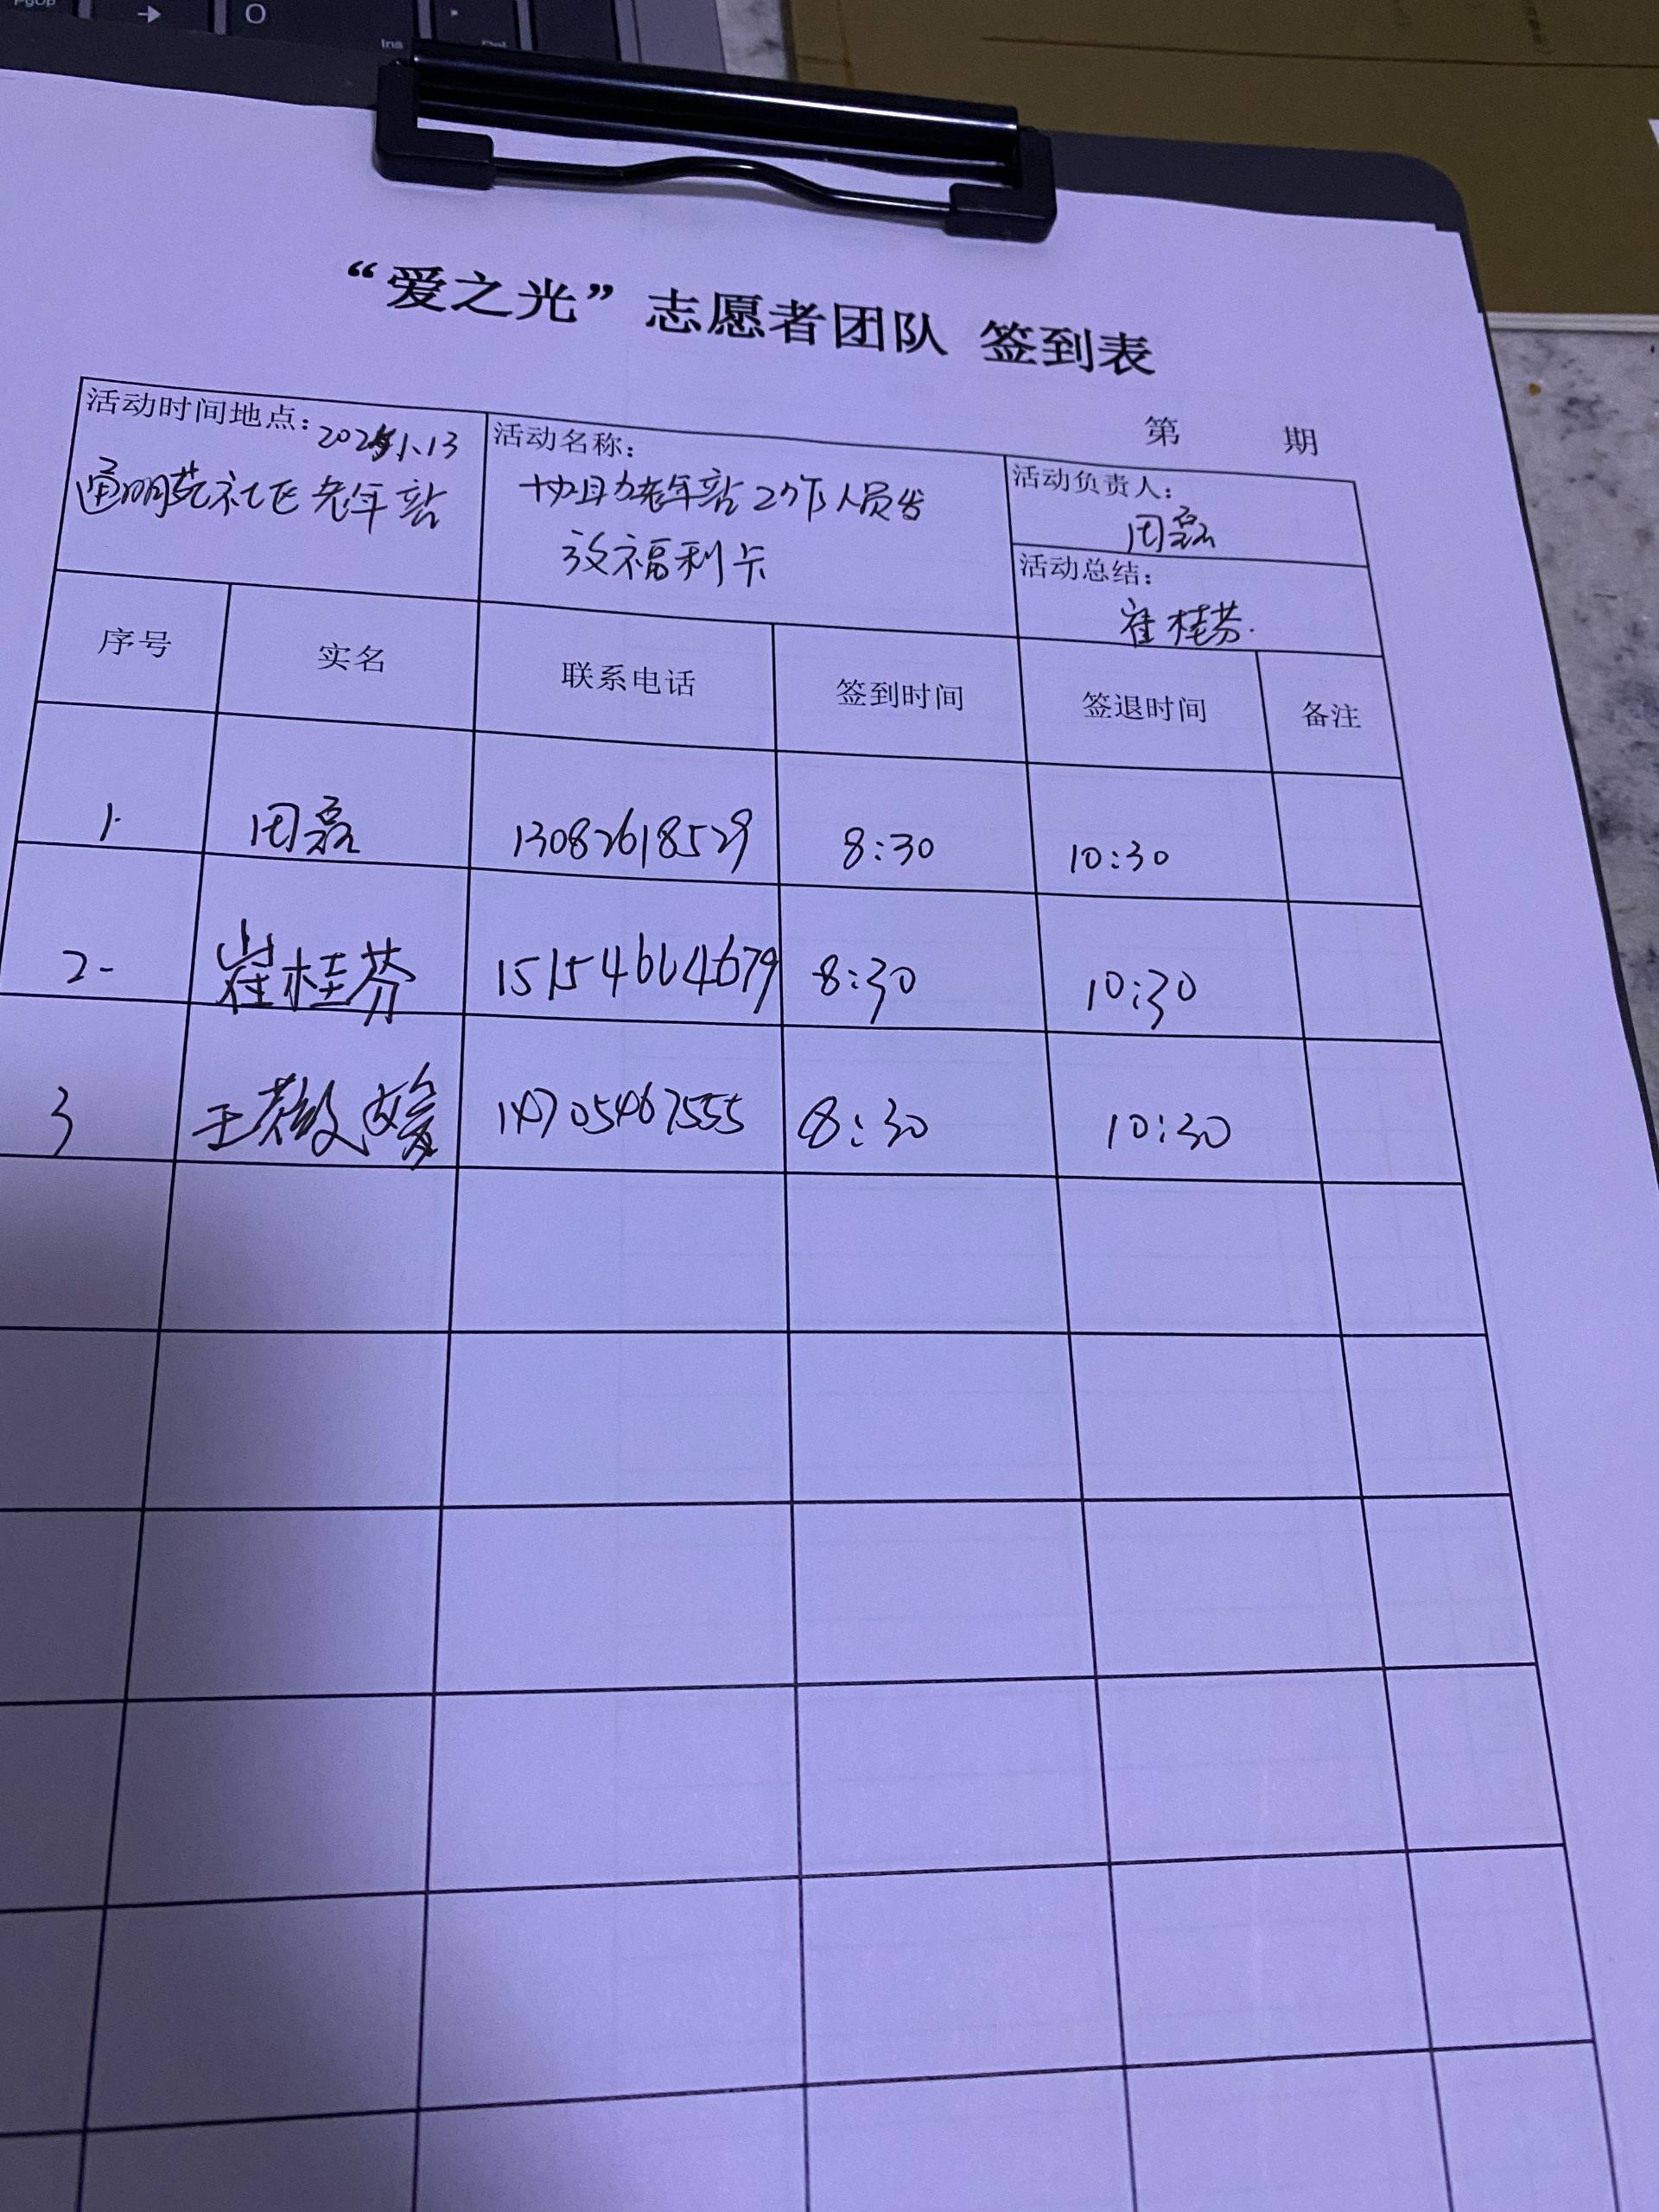 PgUp
→
O
Ins
Del
“爱之光”志愿者团队 签到表
第 期
活动时间地点：2025.1.13
通明苑社区老年站
活动名称：
协助老年站工作人员发
放福利卡
活动负责人：
周磊
活动总结：
崔桂芬.
序号 实名 联系电话 签到时间 签退时间 备注
1. 周磊 13082618529 8:30 10:30
2- 崔桂芬 15154664679 8:30 10:30
3 王 媛 14705467555 8:30 10:30